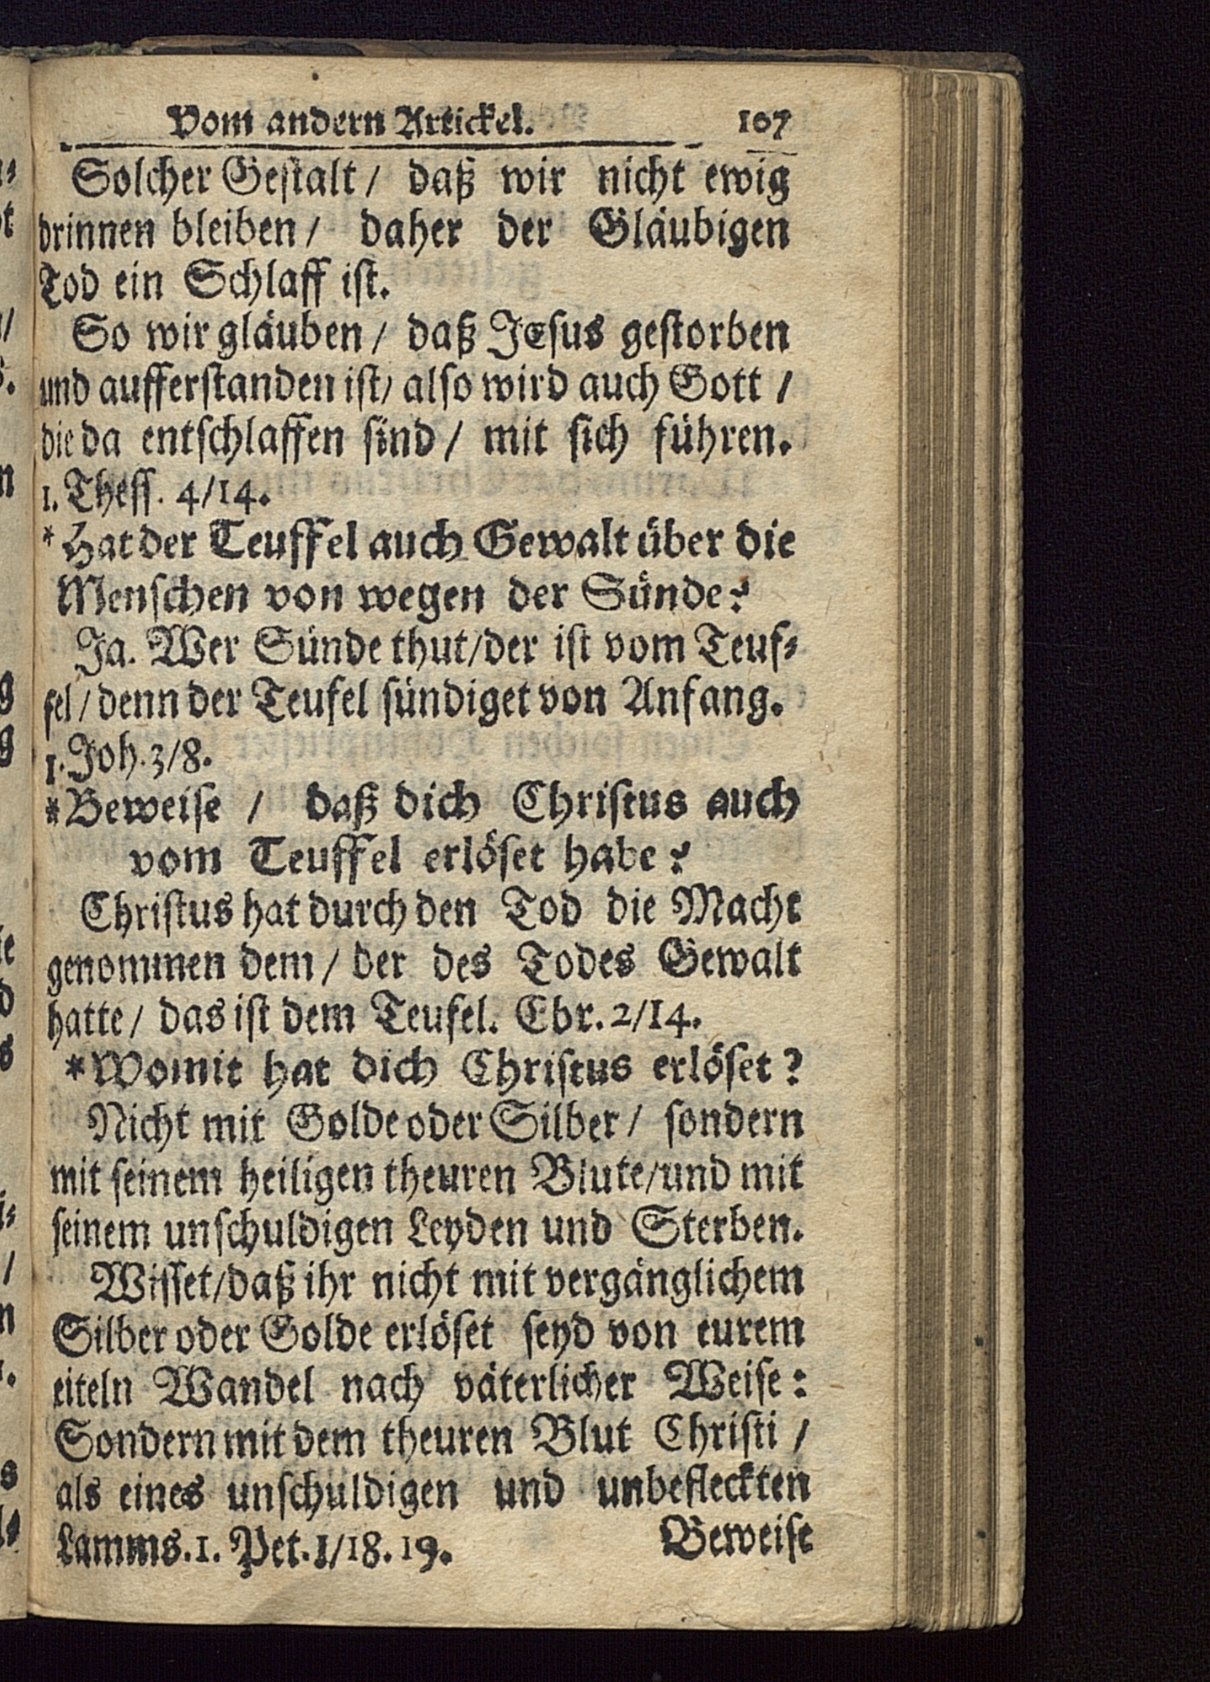 Vom andern Artickel. 107
Solcher Gestalt / daß wir nicht ewig
drinnen bleiben / daher der Gläubigen
Tod ein Schlaff ist.
So wir gläuben / daß JEsus gestorben
und aufferstanden ist / also wird auch Gott /
die da entschlaffen sind / mit sich führen.
1. Thess. 4/14.
* Hat der Teuffel auch Gewalt über die
Menschen von wegen der Sünde?
Ja. Wer Sünde thut / der ist vom Teuf-
fel / denn der Teufel sündiget von Anfang.
1. Joh. 3/8.
* Beweise / daß dich Christus auch
vom Teuffel erlöset habe?
Christus hat durch den Tod die Macht
genommen dem / der des Todes Gewalt
hatte / das ist dem Teufel. Ebr. 2/14.
* Womit hat dich Christus erlöset?
Nicht mit Golde oder Silber / sondern
mit seinem heiligen theuren Blute / und mit
seinem unschuldigen Leyden und Sterben.
Wisset / daß ihr nicht mit vergänglichem
Silber oder Golde erlöset seyd von eurem
eiteln Wandel nach väterlicher Weise:
Sondern mit dem theuren Blut Christi /
als eines unschuldigen und unbefleckten
Lamms. 1. Pet. 1/18. 19.
Beweise